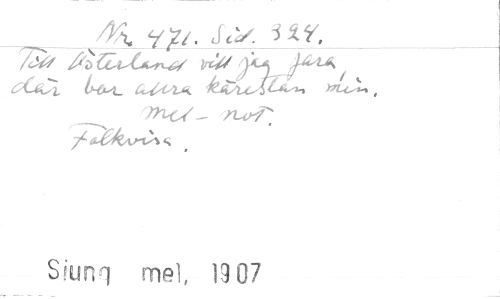 Nr. 471. Sid. 324.
Till Österland vill jag fara,
där bor allra kärestan min.
Mel-not.
Folkvisa.
Sjung mel, 1907